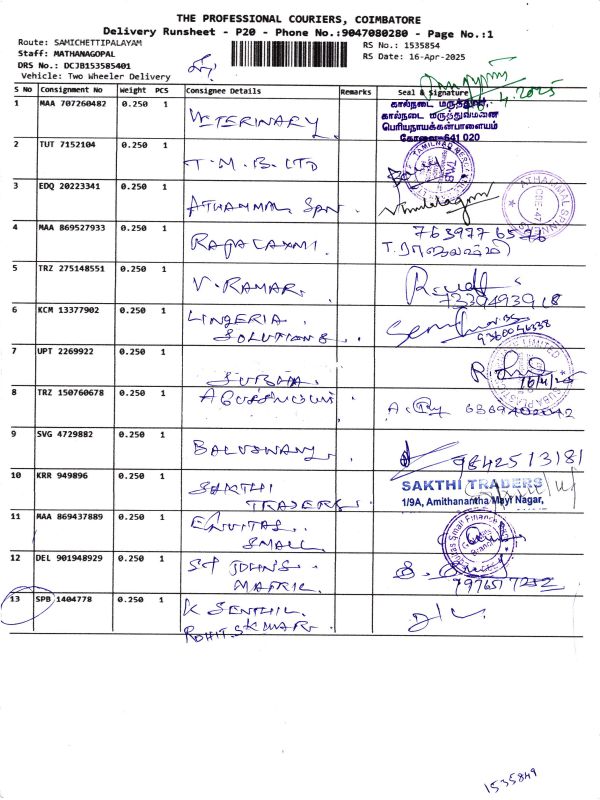 THE PROFESSIONAL COURIERS, COIMBATORE
Delivery Runsheet - P20 - Phone No.:9047080280 - Page No.:1
Route: SAMICHETTIPALAYAM
RS No.: 1535854
Staff: MATHANAGOPAL
RS Date: 16-Apr-2025
DRS No.: DCJB153585401
Vehicle: Two Wheeler Delivery
S No Consignment No Weight PCS Consignee Details Remarks Seal & Signature
1 MAA 707260482 0.250 1 VETERINARY
கால்நடை மருத்துவர்,
கால்நடை மருத்துவமனை
பெரியநாயக்கன்பாளையம்
கோவை-641 020
2 TUT 7152104 0.250 1 T.M.B. LTD
3 EDQ 20223341 0.250 1 ATHAMMAL SPN
4 MAA 869527933 0.250 1 RAJALAXMI 7639776576
5 TRZ 275148551 0.250 1 V. RAMAR 7339493918
6 KCM 13377902 0.250 1 LINGERIA SOLUTIONS 9360046338
7 UPT 2269922 0.250 1 SUBHA
8 TRZ 150760678 0.250 1
9 SVG 4729882 0.250 1 BALUSWAMY 9842513181
10 KRR 949896 0.250 1 SAKTHI TRADERS
SAKTHI TRADERS
1/9A, Amithanantha Mayl Nagar,
11 MAA 869437889 0.250 1 EQUITAS SMALL
12 DEL 901948929 0.250 1 ST JOHNS MATRIC
13 SPB 1404778 0.250 1 K SENTHIL
ROHIT.S KUMAR
1535849